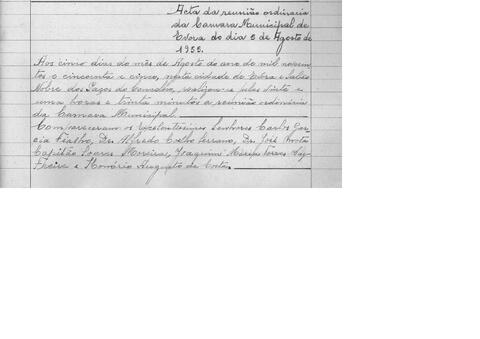 Acta da reunião ordinaria
da Camara Municipal de
Evora do dia 5 de Agosto de
1955.
Aos cinco dias do mês de Agosto do ano de mil novecen-
tos e cincoenta e cinco, nesta cidade de Evora e Salão
Nobre dos Paços do Concelho, realizou-se pelas vinte e
uma horas e trinta minutos a reunião ordinária
da Camara Municipal.
Compareceram os Excelentissimos Senhores Carlos Gar-
cia Fialho, Dr. Alfredo Coelho Serrano, Dr. José
Capitão Soares Moreira, Joaquim Torres
Freire e Honório Augusto da Costa.